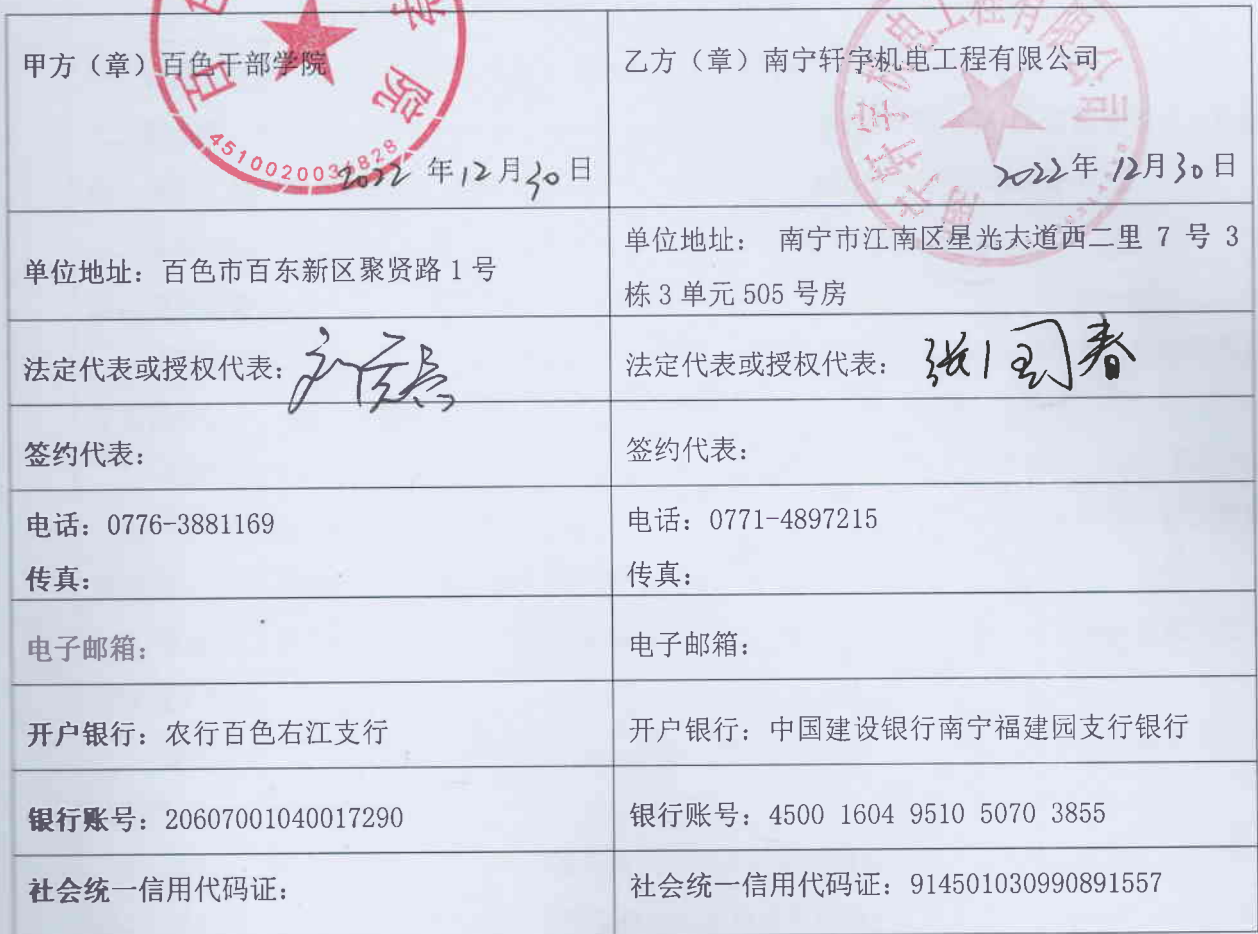 甲方（章）百色干部学院
2022年12月30日
乙方（章）南宁轩宇机电工程有限公司
2022年12月30日
单位地址：百色市百东新区聚贤路1号
单位地址： 南宁市江南区星光大道西二里 7 号 3
栋3单元505号房
法定代表或授权代表：
法定代表或授权代表：张国春
签约代表：
签约代表：
电话：0776-3881169
传真：
电话：0771-4897215
传真：
电子邮箱：
电子邮箱：
开户银行：农行百色右江支行
开户银行：中国建设银行南宁福建园支行银行
银行账号：20607001040017290
银行账号：4500 1604 9510 5070 3855
社会统一信用代码证：
社会统一信用代码证：914501030990891557
南宁轩宇机电工程有限公司